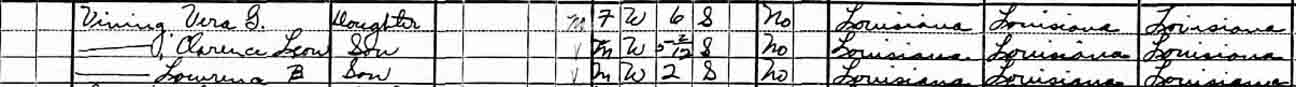 Vining, Vera G. Daughter F W 6 S No Louisiana Louisiana Louisiana
——, Clarence Leon Son M W 5 2/12 S No Louisiana Louisiana Louisiana
—— B Son M W 2 S No Louisiana Louisiana Louisiana